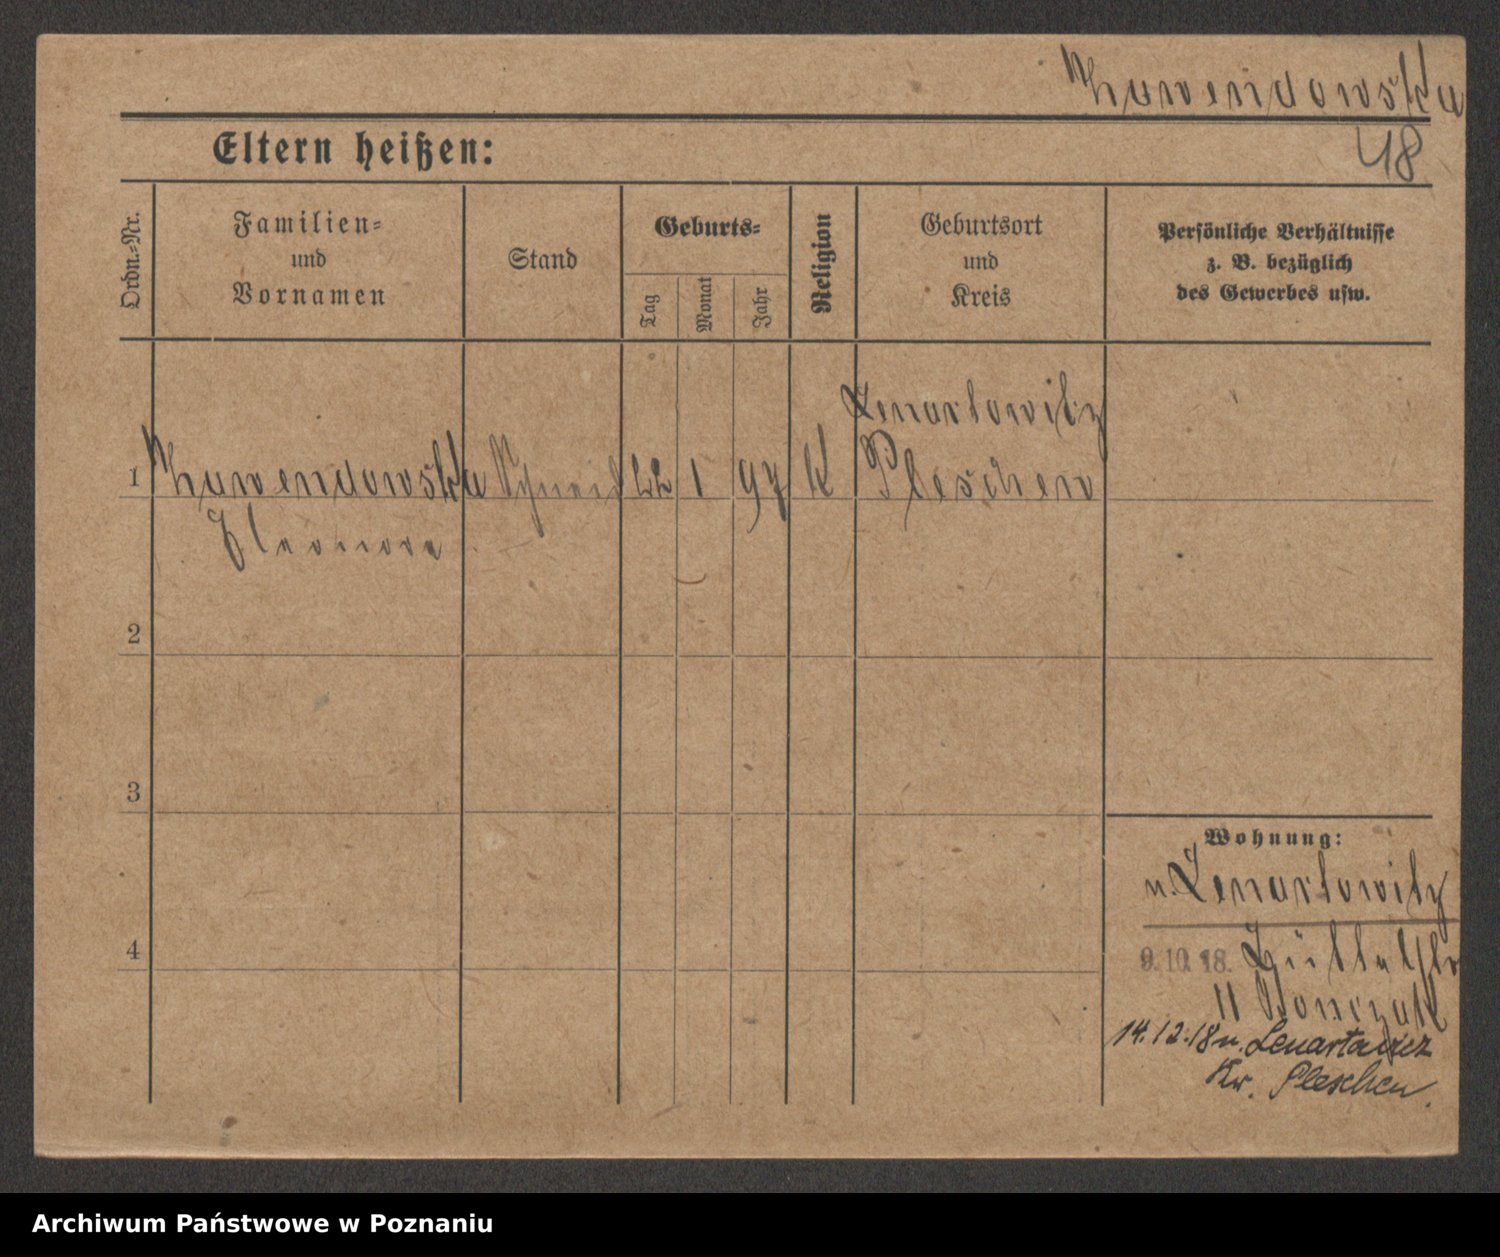 48
Eltern heißen:
Ordn.-Nr.
Familien-
und
Vornamen
Stand
Geburts-
Tag
Monat
Jahr
Religion
Geburtsort
und
Kreis
Persönliche Verhältnisse
z. B. bezüglich
des Gewerbes usw.
Lenartowitz
1 Schneid 22 1 97 K Pleschen
Eleonora
2
3
4
Wohnung:
n. Lenartowitz
9.10.18.
11
14.12.18 n. Lenartowicz
Kr. Pleschen.
Archiwum Państwowe w Poznaniu